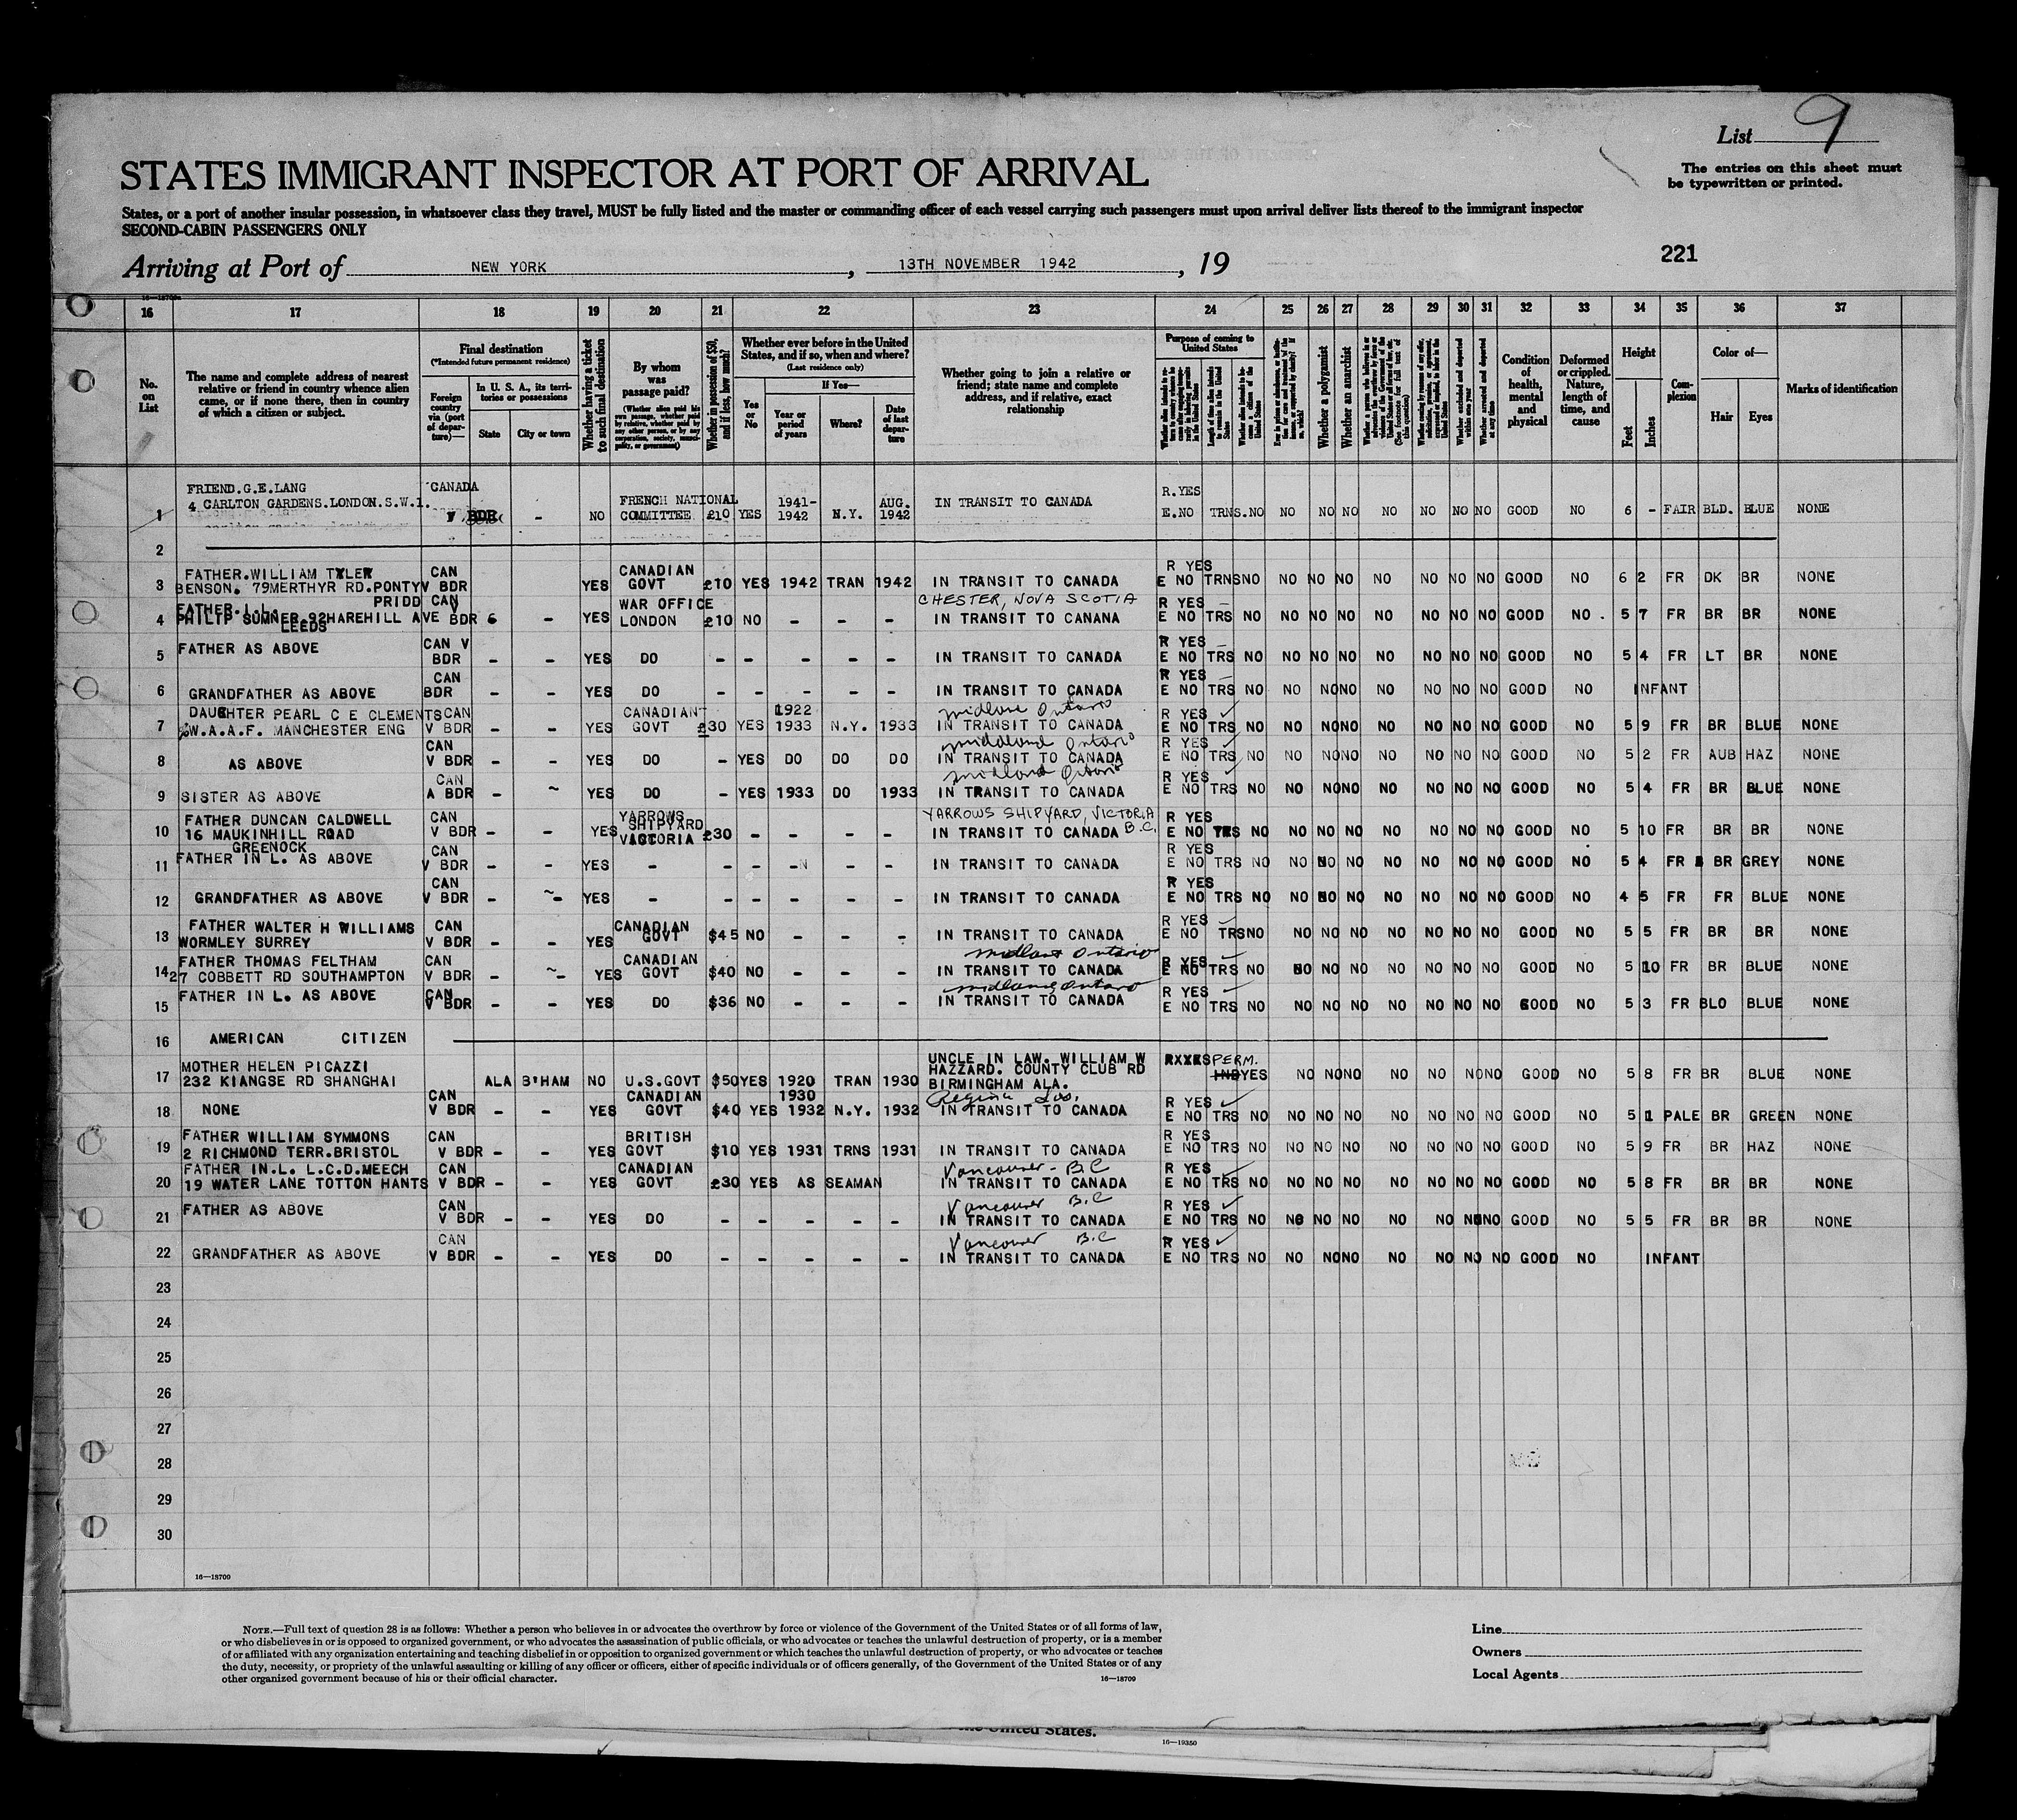 List 9
The entries on this sheet must
be typewritten or printed.
STATES IMMIGRANT INSPECTOR AT PORT OF ARRIVAL
States, or a port of another insular possession, in whatsoever class they travel, MUST be fully listed and the master or commanding officer of each vessel carrying such passengers must upon arrival deliver lists thereof to the immigrant inspector
SECOND-CABIN PASSENGERS ONLY
Arriving at Port of NEW YORK, 13TH NOVEMBER 1942, 19
221
16 17 18 19 20 21 22 23 24 25 26 27 28 29 30 31 32 33 34 35 36 37
No. on List
The name and complete address of nearest relative or friend in country whence alien came, or if none there, then in country of which a citizen or subject.
Final destination
(*Intended future permanent residence)
Foreign country via (port of departure)—
In U. S. A., its territories or possessions
State City or town
Whether having a ticket to such final destination
By whom was passage paid?
(Whether alien paid his own passage, whether paid by relative, whether paid by any other person, or by any corporation, society, municipality, or government)
Whether in possession of $50, and if less, how much?
Whether ever before in the United States, and if so, when and where?
(Last residence only)
If Yes—
Yes or No
Year or period of years
Where?
Date of last departure
Whether going to join a relative or friend; state name and complete address, and if relative, exact relationship
Purpose of coming to United States
Whether a polygamist
Whether an anarchist
Condition of health, mental and physical
Deformed or crippled. Nature, length of time, and cause
Height
Feet Inches
Complexion
Color of—
Hair Eyes
Marks of identification
1 FRIEND.G.E.LANG 4 CARLTON GARDENS.LONDON.S.W.1. CANADA V BDR - NO FRENCH NATIONAL COMMITTEE £10 YES 1941-1942 N.Y. AUG. 1942 IN TRANSIT TO CANADA R.YES E.NO TRNS.NO NO NO NO NO NO NO NO GOOD NO 6 - FAIR BLD. BLUE NONE
2
3 FATHER.WILLIAM TYLER BENSON. 79MERTHYR RD.PONTY PRIDD CAN V BDR YES CANADIAN GOVT £10 YES 1942 TRAN 1942 IN TRANSIT TO CANADA R YES E NO TRNS NO NO NO NO NO NO NO NO GOOD NO 6 2 FR DK BR NONE
4 FATHER.I.L. PHILIP SUMNER.92HAREHILL AVE LEEDS CAN V BDR 6 - YES WAR OFFICE LONDON £10 NO - - - CHESTER, NOVA SCOTIA IN TRANSIT TO CANANA R YES E NO TRS NO NO NO NO NO NO NO NO GOOD NO 5 7 FR BR BR NONE
5 FATHER AS ABOVE CAN V BDR - - YES DO - - - - - IN TRANSIT TO CANADA R YES E NO TRS NO NO NO NO NO NO NO NO GOOD NO 5 4 FR LT BR NONE
6 GRANDFATHER AS ABOVE CAN BDR - - YES DO - - - - - IN TRANSIT TO CANADA R YES E NO TRS NO NO NO NO NO NO NO NO GOOD NO INFANT
7 DAUGHTER PEARL C E CLEMENTS %W.A.A.F. MANCHESTER ENG CAN V BDR - - YES CANADIAN GOVT £30 YES 1922 1933 N.Y. 1933 midland Ontario IN TRANSIT TO CANADA R YES E NO TRS NO NO NO NO NO NO NO NO GOOD NO 5 9 FR BR BLUE NONE
8 AS ABOVE CAN V BDR - - YES DO - YES DO DO DO midland Ontario IN TRANSIT TO CANADA R YES E NO TRS NO NO NO NO NO NO NO NO GOOD NO 5 2 FR AUB HAZ NONE
9 SISTER AS ABOVE CAN A BDR - ~ YES DO - YES 1933 DO 1933 midland Ontario IN TRANSIT TO CANADA R YES E NO TRS NO NO NO NO NO NO NO NO GOOD NO 5 4 FR BR BLUE NONE
10 FATHER DUNCAN CALDWELL 16 MAUKINHILL ROAD GREENOCK CAN V BDR - - YES YARROWS SHIPYARD VICTORIA £30 - - - - YARROWS SHIPYARD, VICTORIA B.C. IN TRANSIT TO CANADA R YES E NO TRS NO NO NO NO NO NO NO NO GOOD NO 5 10 FR BR BR NONE
11 FATHER IN L. AS ABOVE CAN V BDR - - YES - - - - - IN TRANSIT TO CANADA R YES E NO TRS NO NO NO NO NO NO NO NO GOOD NO 5 4 FR BR GREY NONE
12 GRANDFATHER AS ABOVE CAN V BDR - - YES - - - - - - IN TRANSIT TO CANADA R YES E NO TRS NO NO NO NO NO NO NO NO GOOD NO 4 5 FR FR BLUE NONE
13 FATHER WALTER H WILLIAMS WORMLEY SURREY CAN V BDR - - YES CANADIAN GOVT $45 NO - - - IN TRANSIT TO CANADA R YES E NO TRS NO NO NO NO NO NO NO NO GOOD NO 5 5 FR BR BR NONE
14 FATHER THOMAS FELTHAM 27 COBBETT RD SOUTHAMPTON CAN V BDR - - YES CANADIAN GOVT $40 NO - - - midland Ontario IN TRANSIT TO CANADA R YES E NO TRS NO NO NO NO NO NO NO NO GOOD NO 5 10 FR BR BLUE NONE
15 FATHER IN L. AS ABOVE CAN V BDR - - YES DO $36 NO - - - midland Ontario IN TRANSIT TO CANADA R YES E NO TRS NO NO NO NO NO NO NO NO GOOD NO 5 3 FR BLO BLUE NONE
16 AMERICAN CITIZEN
17 MOTHER HELEN PICAZZI 232 KIANGSE RD SHANGHAI ALA B'HAM NO U.S.GOVT $50 YES 1920 1930 TRAN 1930 UNCLE IN LAW. WILLIAM W HAZZARD. COUNTY CLUB RD BIRMINGHAM ALA. PERM. YES NO NO NO NO NO NO NO GOOD NO 5 8 FR BR BLUE NONE
18 NONE CAN V BDR - - YES CANADIAN GOVT $40 YES 1932 N.Y. 1932 Regina IN TRANSIT TO CANADA R YES E NO TRS NO NO NO NO NO NO NO NO GOOD NO 5 1 PALE BR GREEN NONE
19 FATHER WILLIAM SYMMONS 2 RICHMOND TERR.BRISTOL CAN V BDR - - YES BRITISH GOVT $10 YES 1931 TRNS 1931 IN TRANSIT TO CANADA R YES E NO TRS NO NO NO NO NO NO NO NO GOOD NO 5 9 FR BR HAZ NONE
20 FATHER IN.L. L.C.D.MEECH 19 WATER LANE TOTTON HANTS CAN V BDR - - YES CANADIAN GOVT £30 YES AS SEAMAN Vancouver - B.C IN TRANSIT TO CANADA R YES E NO TRS NO NO NO NO NO NO NO NO GOOD NO 5 8 FR BR BR NONE
21 FATHER AS ABOVE CAN V BDR - - YES DO - - - - - Vancouver B.C IN TRANSIT TO CANADA R YES E NO TRS NO NO NO NO NO NO NO NO GOOD NO 5 5 FR BR BR NONE
22 GRANDFATHER AS ABOVE CAN V BDR - - YES DO - - - - - Vancouver B.C IN TRANSIT TO CANADA R YES E NO TRS NO NO NO NO NO NO NO NO GOOD NO INFANT
23
24
25
26
27
28
29
30
16—18700
NOTE.—Full text of question 28 is as follows: Whether a person who believes in or advocates the overthrow by force or violence of the Government of the United States or of all forms of law,
or who disbelieves in or is opposed to organized government, or who advocates the assassination of public officials, or who advocates or teaches the unlawful destruction of property, or is a member
of or affiliated with any organization entertaining and teaching disbelief in or opposition to organized government or which teaches the unlawful destruction of property, or who advocates or teaches
the duty, necessity, or propriety of the unlawful assaulting or killing of any officer or officers, either of specific individuals or of officers generally, of the Government of the United States or of any
other organized government because of his or their official character.
16—18709
Line
Owners
Local Agents
the United States.
16—19350